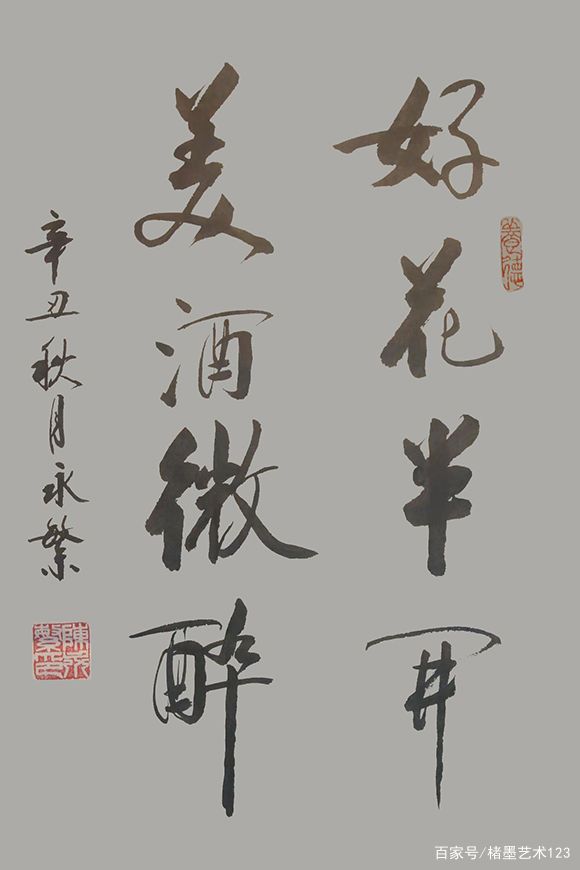 好花半開
美酒微醉
辛丑秋月永繁
陳永繁印
百家号/楮墨艺术123